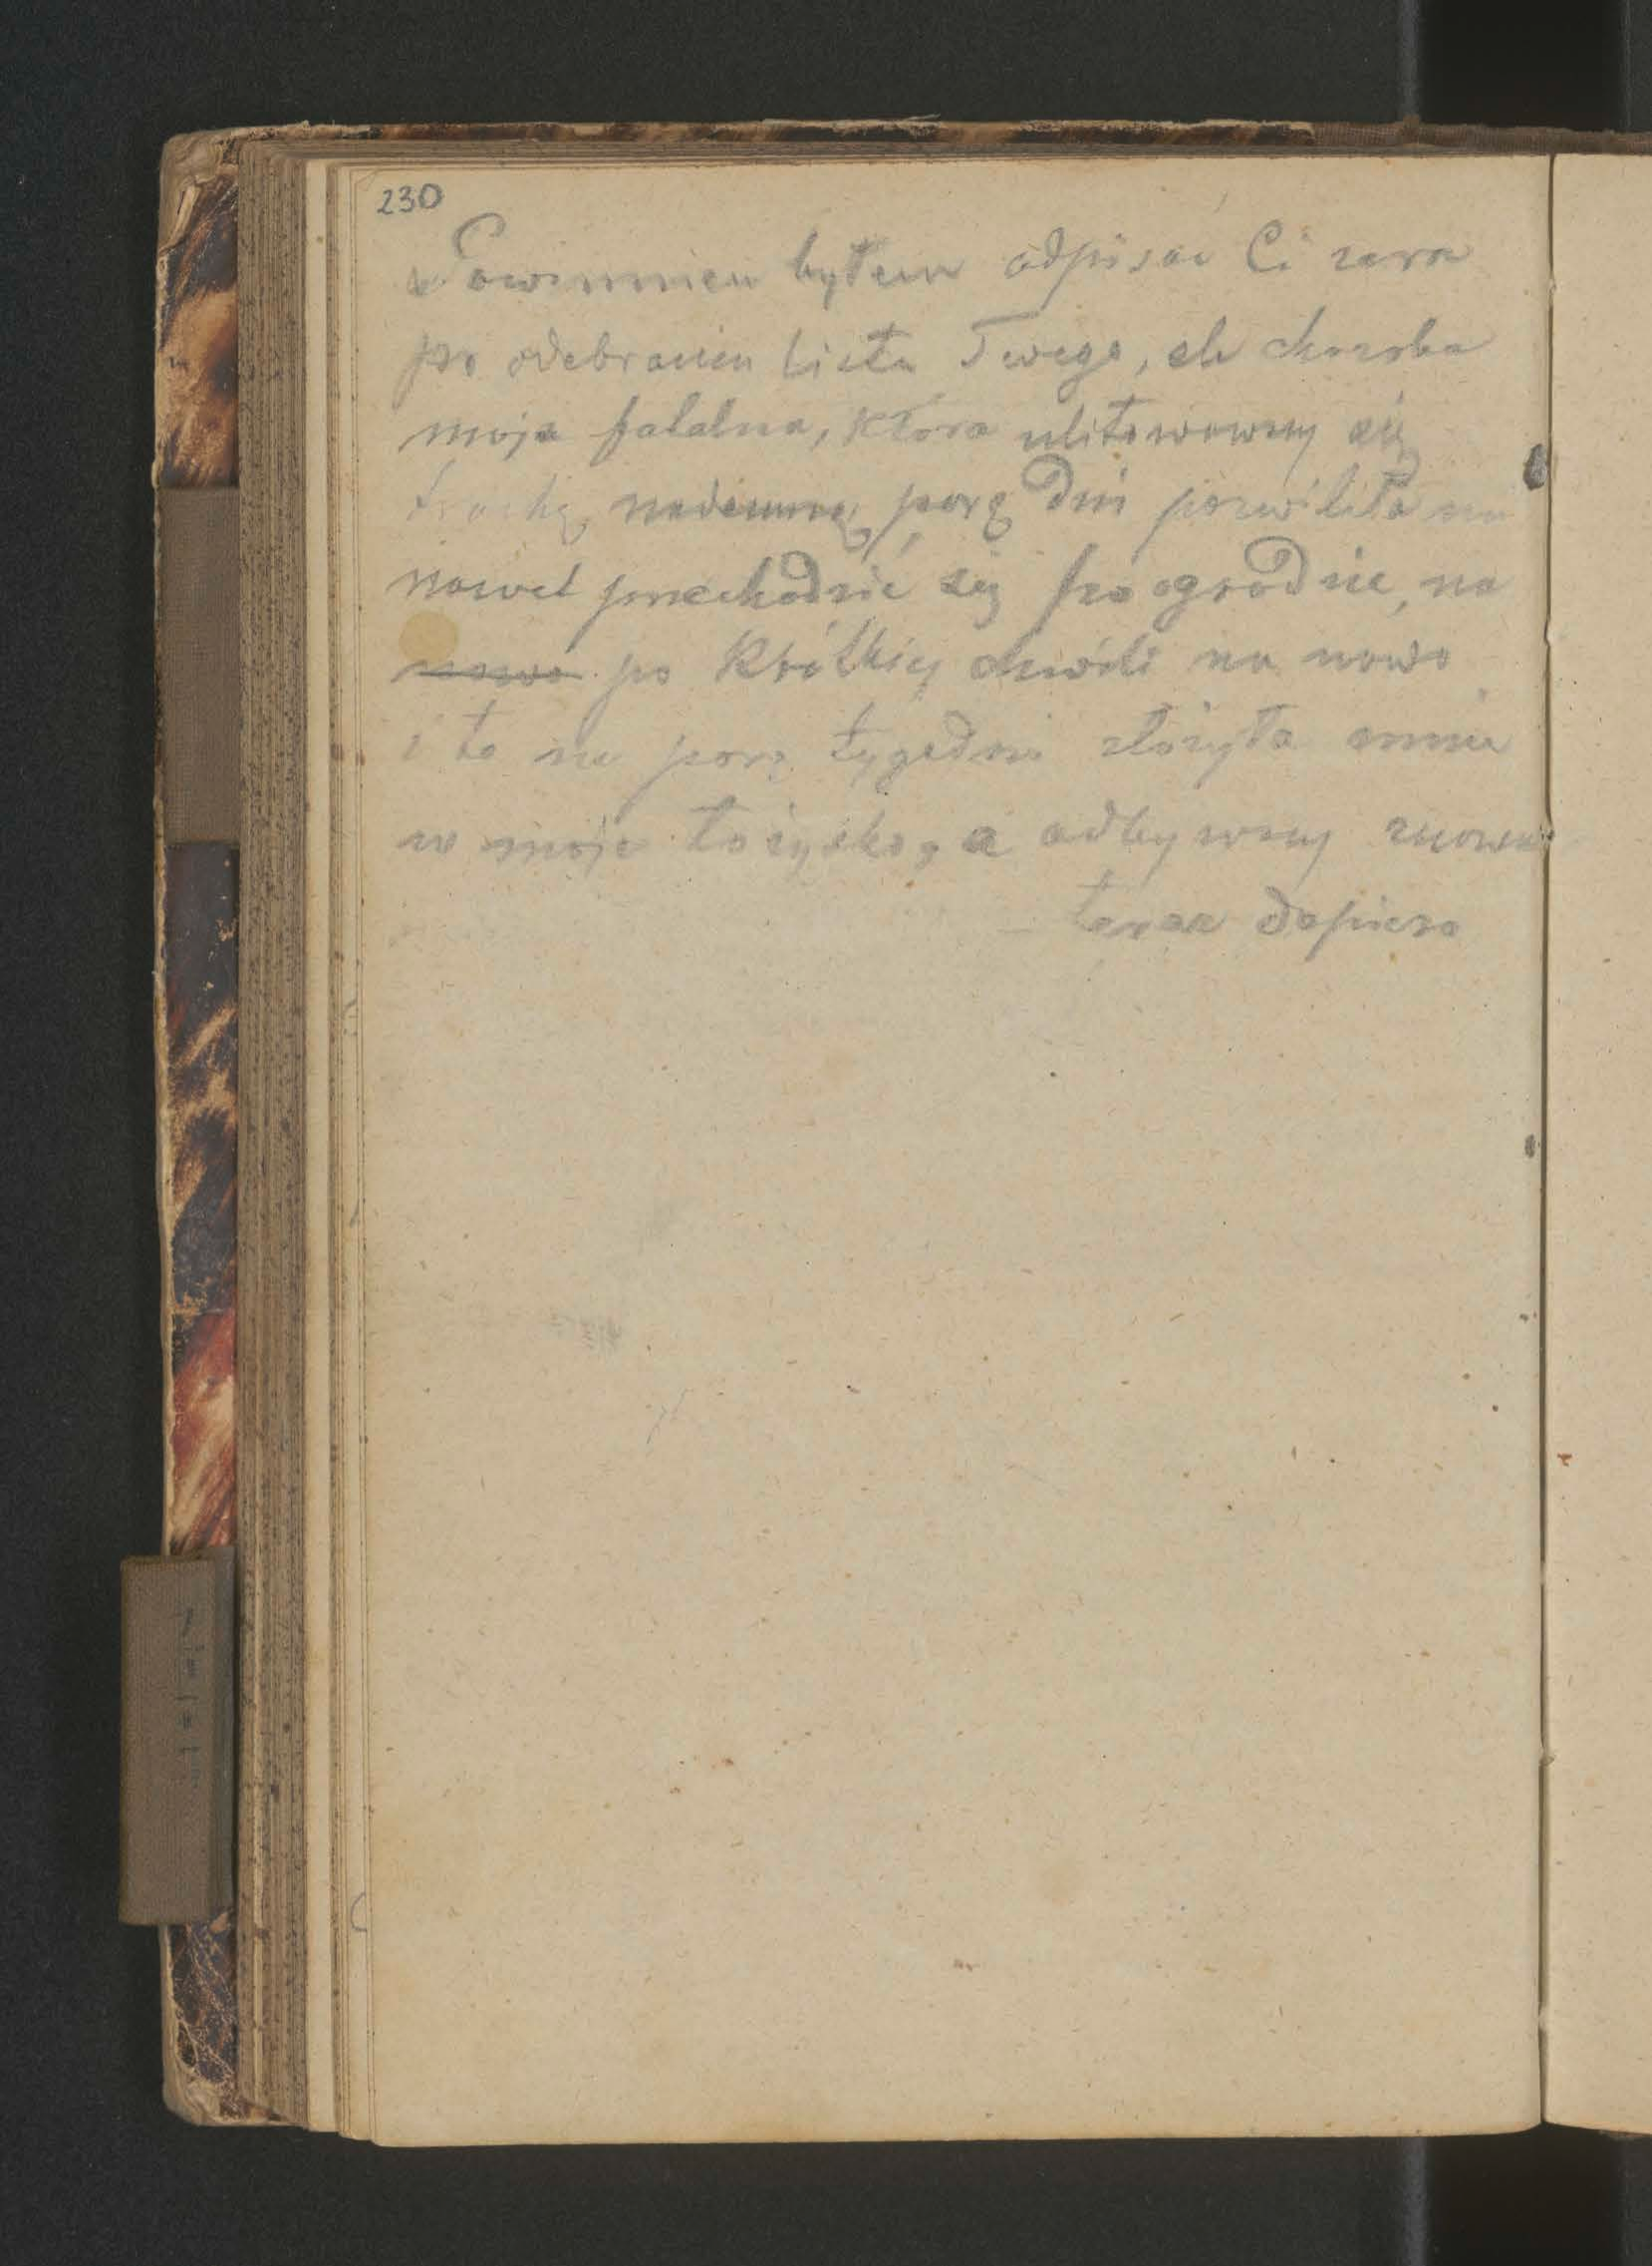 230
Powinnien byłem odpisać Ci zara
po odebraniu listu Twego, ale choroba
moja fatalna, która ulitowawszy się
trochę nademną, parę dni pozwiliła mi
nawet przechodzić się po ogrodzie, na
nowo po krótkiej chwili na nowo
i to na parę tygodni złożyła mnie
w moje łożysko, a odbywszy znowu
teraz dopiero